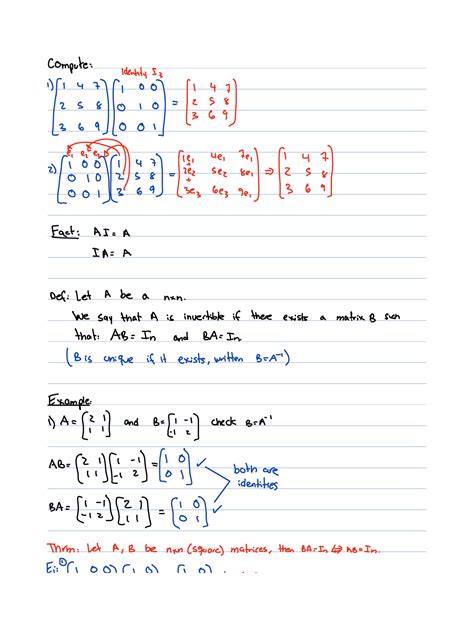 Compute:
Identity I₃
1) [1 4 7; 2 5 8; 3 6 9] [1 0 0; 0 1 0; 0 0 1] = [1 4 7; 2 5 8; 3 6 9]
e₁ e₂ e₃
2) [1 0 0; 0 1 0; 0 0 1] [1 4 7; 2 5 8; 3 6 9] = [1e₁ 4e₁ 7e₁; 2e₂ 5e₂ 8e₁; + 3e₃ 6e₃ 9e₁] ⇒ [1 4 7; 2 5 8; 3 6 9]
Fact: AI = A
IA = A
Def: Let A be a nxn.
We say that A is invertible if there exists a matrix B such
that: AB = In and BA = In
(B is unique if it exists, written B=A⁻¹)
Example
1) A = [2 1; 1 1] and B = [1 -1; -1 2] check B=A⁻¹
AB = [2 1; 1 1] [1 -1; -1 2] = [1 0; 0 1] ✓
both are
identities
BA = [1 -1; -1 2] [2 1; 1 1] = [1 0; 0 1] ✓
Thrm: Let A, B be nxn (square) matrices, then BA=In ⇔ AB=In.